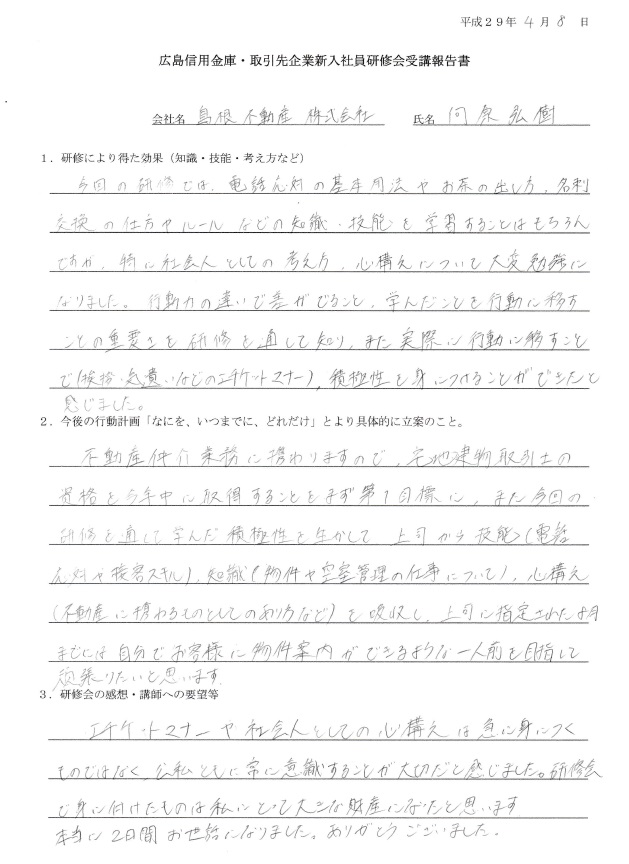 平成29年 4月 8日
広島信用金庫・取引先企業新入社員研修会受講報告書
会社名 島根不動産 株式会社 氏名 河原弘樹
1．研修により得た効果（知識・技能・考え方など）
今回の研修では、電話応対の基本用法やお茶の出し方、名刺
交換の仕方やルールなどの知識・技能を学習することはもちろん
ですが、特に社会人としての考え方、心構えについて大変勉強に
なりました。行動力の違いで差がでること、学んだことを行動に移す
ことの重要さを研修を通して知り、また実際に行動に移すこと
で(挨拶・気遣いなどのエチケットマナー)、積極性を身につけることができたと
感じました。
2．今後の行動計画「なにを、いつまでに、どれだけ」とより具体的に立案のこと。
不動産仲介業務に携わりますので、宅地建物取引士の
資格を今年中に取得することをまず第1目標に、また今回の
研修を通して学んだ積極性を生かして、上司から技能(電話
応対や接客スキル)、知識(物件や空室管理の仕事について)、心構え
(不動産に携わるものとしてのあり方など)を吸収し、上司に指定された8月
までには自分でお客様に物件案内ができるような一人前を目指して
頑張りたいと思います。
3．研修会の感想・講師への要望等
エチケットマナーや社会人としての心構えは急に身につく
ものではなく、公私ともに常に意識することが大切だと感じました。研修会
で身に付けたものは私にとって大きな財産になったと思います。
本当に2日間お世話になりました。ありがとうございました。